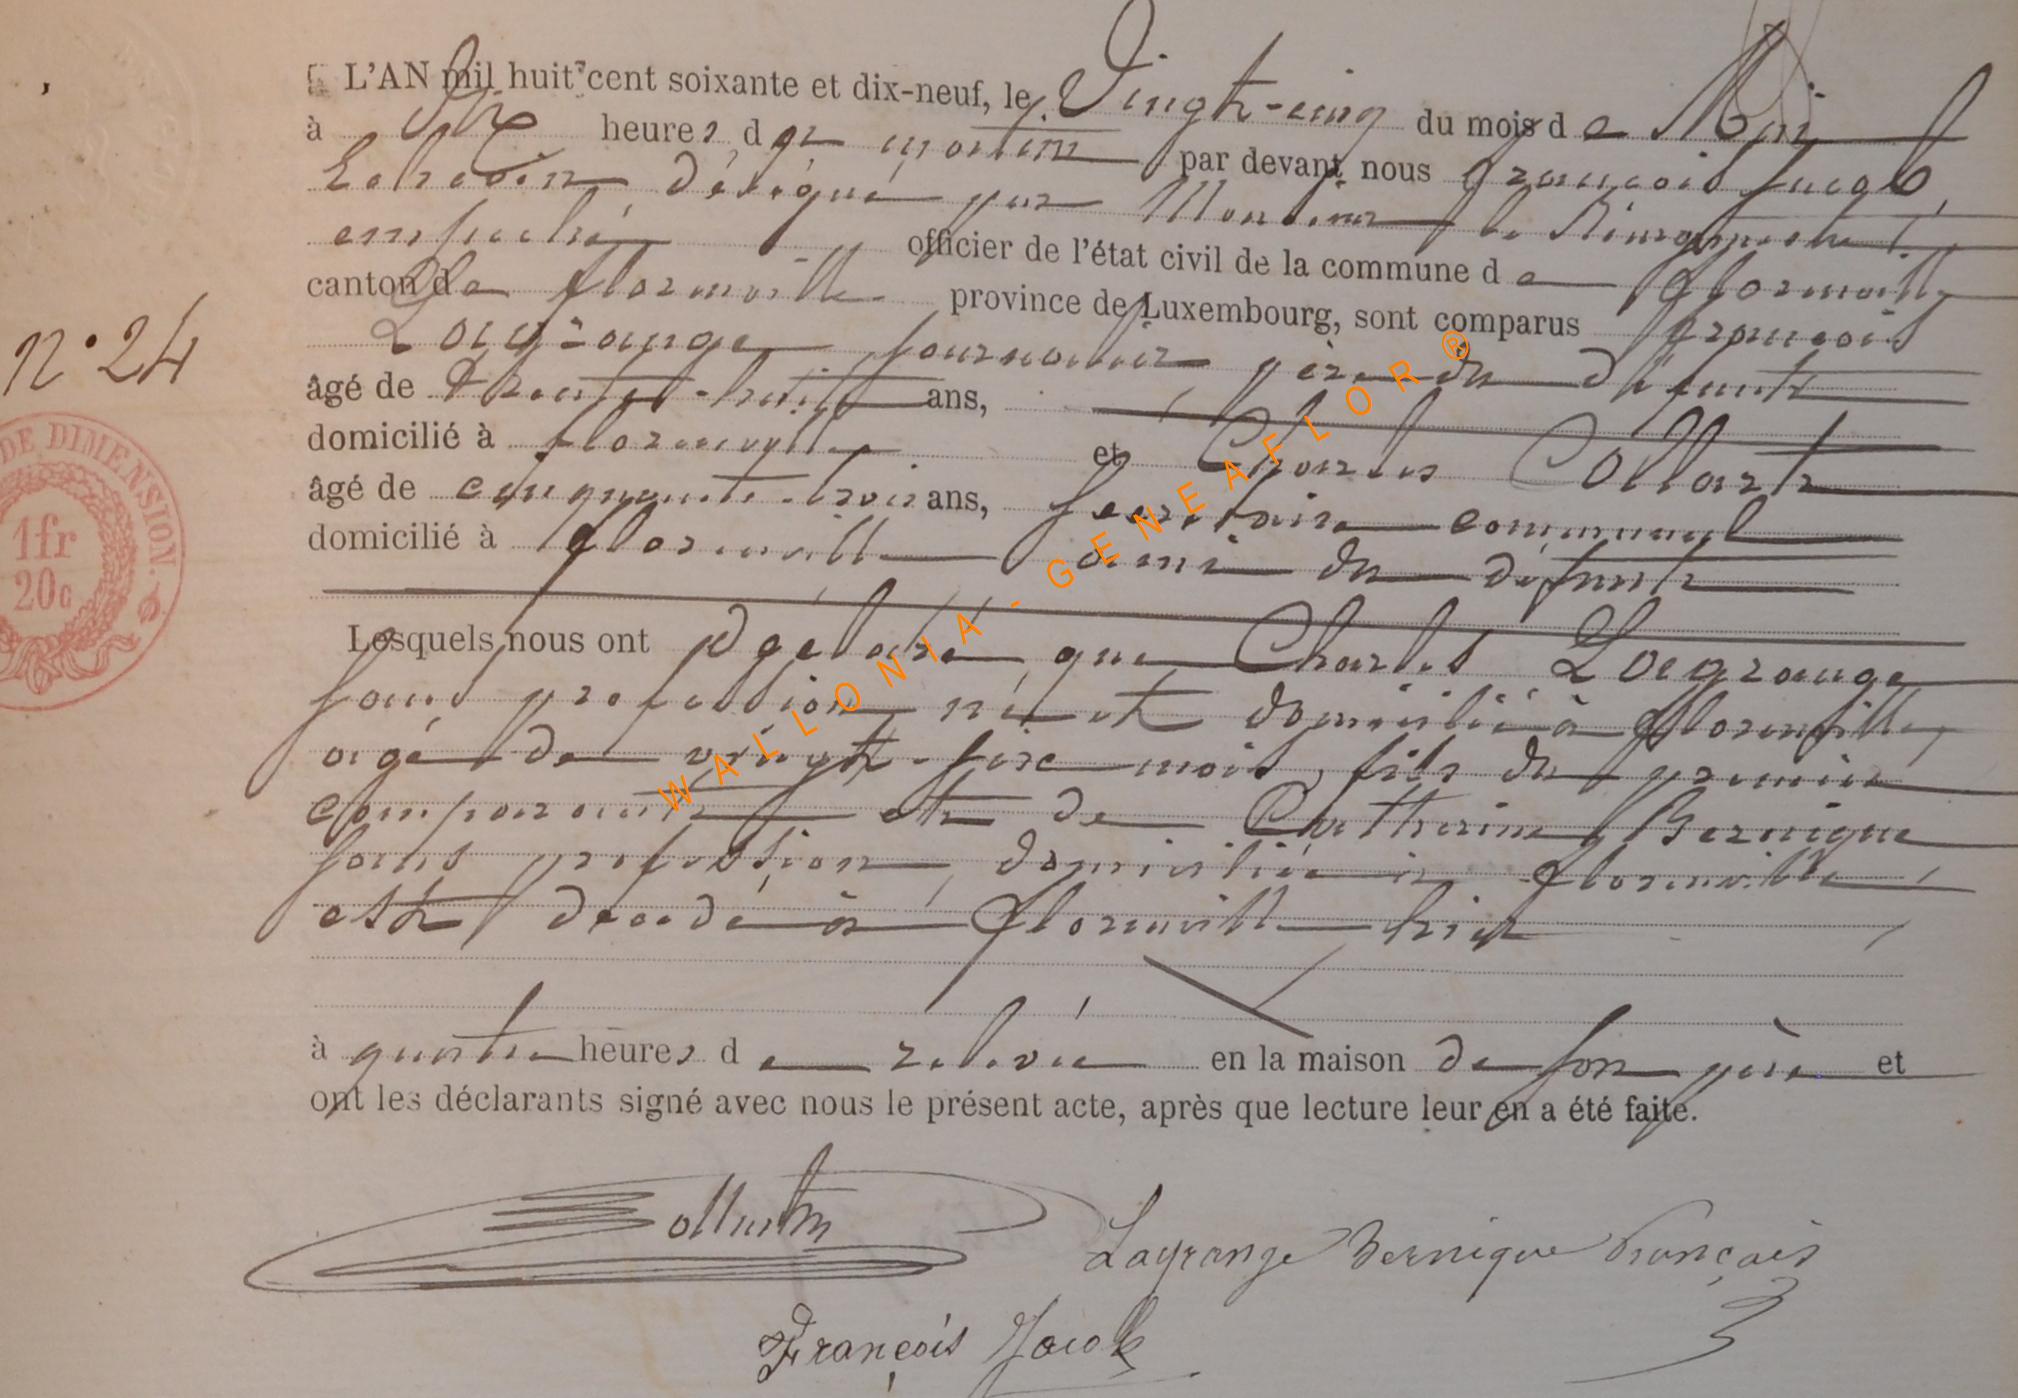 L'AN mil huit cent soixante et dix-neuf, le Vingt-cinq du mois de Mai
à Six heures du matin par devant nous François Jacob,
Echevin, délégué par Monsieur le Bourgmestre
empêché, officier de l'état civil de la commune de Florenville
canton de Florenville province de Luxembourg, sont comparus François
Lagrange, journalier père du défunt
âgé de trente-huit ans,
domicilié à Florenville et Charles Collart
âgé de cinquante-trois ans, secrétaire communal
domicilié à Florenville ami du défunt
Lesquels nous ont déclaré que Charles Lagrange
sans profession né et domicilié à Florenville,
agé de vingt-six mois, fils du premier
comparant et de Catherine Bernique
sans profession, domiciliée à Florenville
est décédé à Florenville hier
à quatre heures de relevée en la maison de son père et
ont les déclarants signé avec nous le présent acte, après que lecture leur en a été faite.
N° 24
DE DIMENSION.
1fr
20c
WALLONIA - GENEAFLOR ®
Collart
Lagrange Bernique François
François Jacob